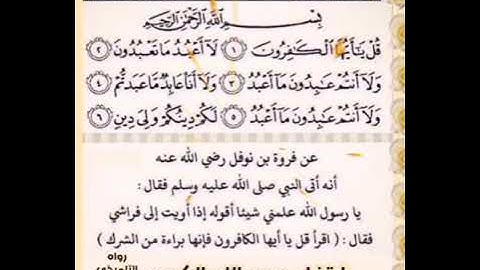 بِسْمِ اللَّهِ الرَّحْمَٰنِ الرَّحِيمِ
قُلْ يَٰٓأَيُّهَا ٱلْكَٰفِرُونَ ١ لَآ أَعْبُدُ مَا تَعْبُدُونَ ٢
وَلَآ أَنتُمْ عَٰبِدُونَ مَآ أَعْبُدُ ٣ وَلَآ أَنَا۠ عَابِدٌ مَّا عَبَدتُّمْ ٤
وَلَآ أَنتُمْ عَٰبِدُونَ مَآ أَعْبُدُ ٥ لَكُمْ دِينُكُمْ وَلِىَ دِينِ ٦
عن فروة بن نوفل رضي الله عنه
أنه أتى النبي صلى الله عليه وسلم فقال :
يا رسول الله علمني شيئا أقوله إذا أويت إلى فراشي
فقال : ( اقرأ قل يا أيها الكافرون فإنها براءة من الشرك )
رواه